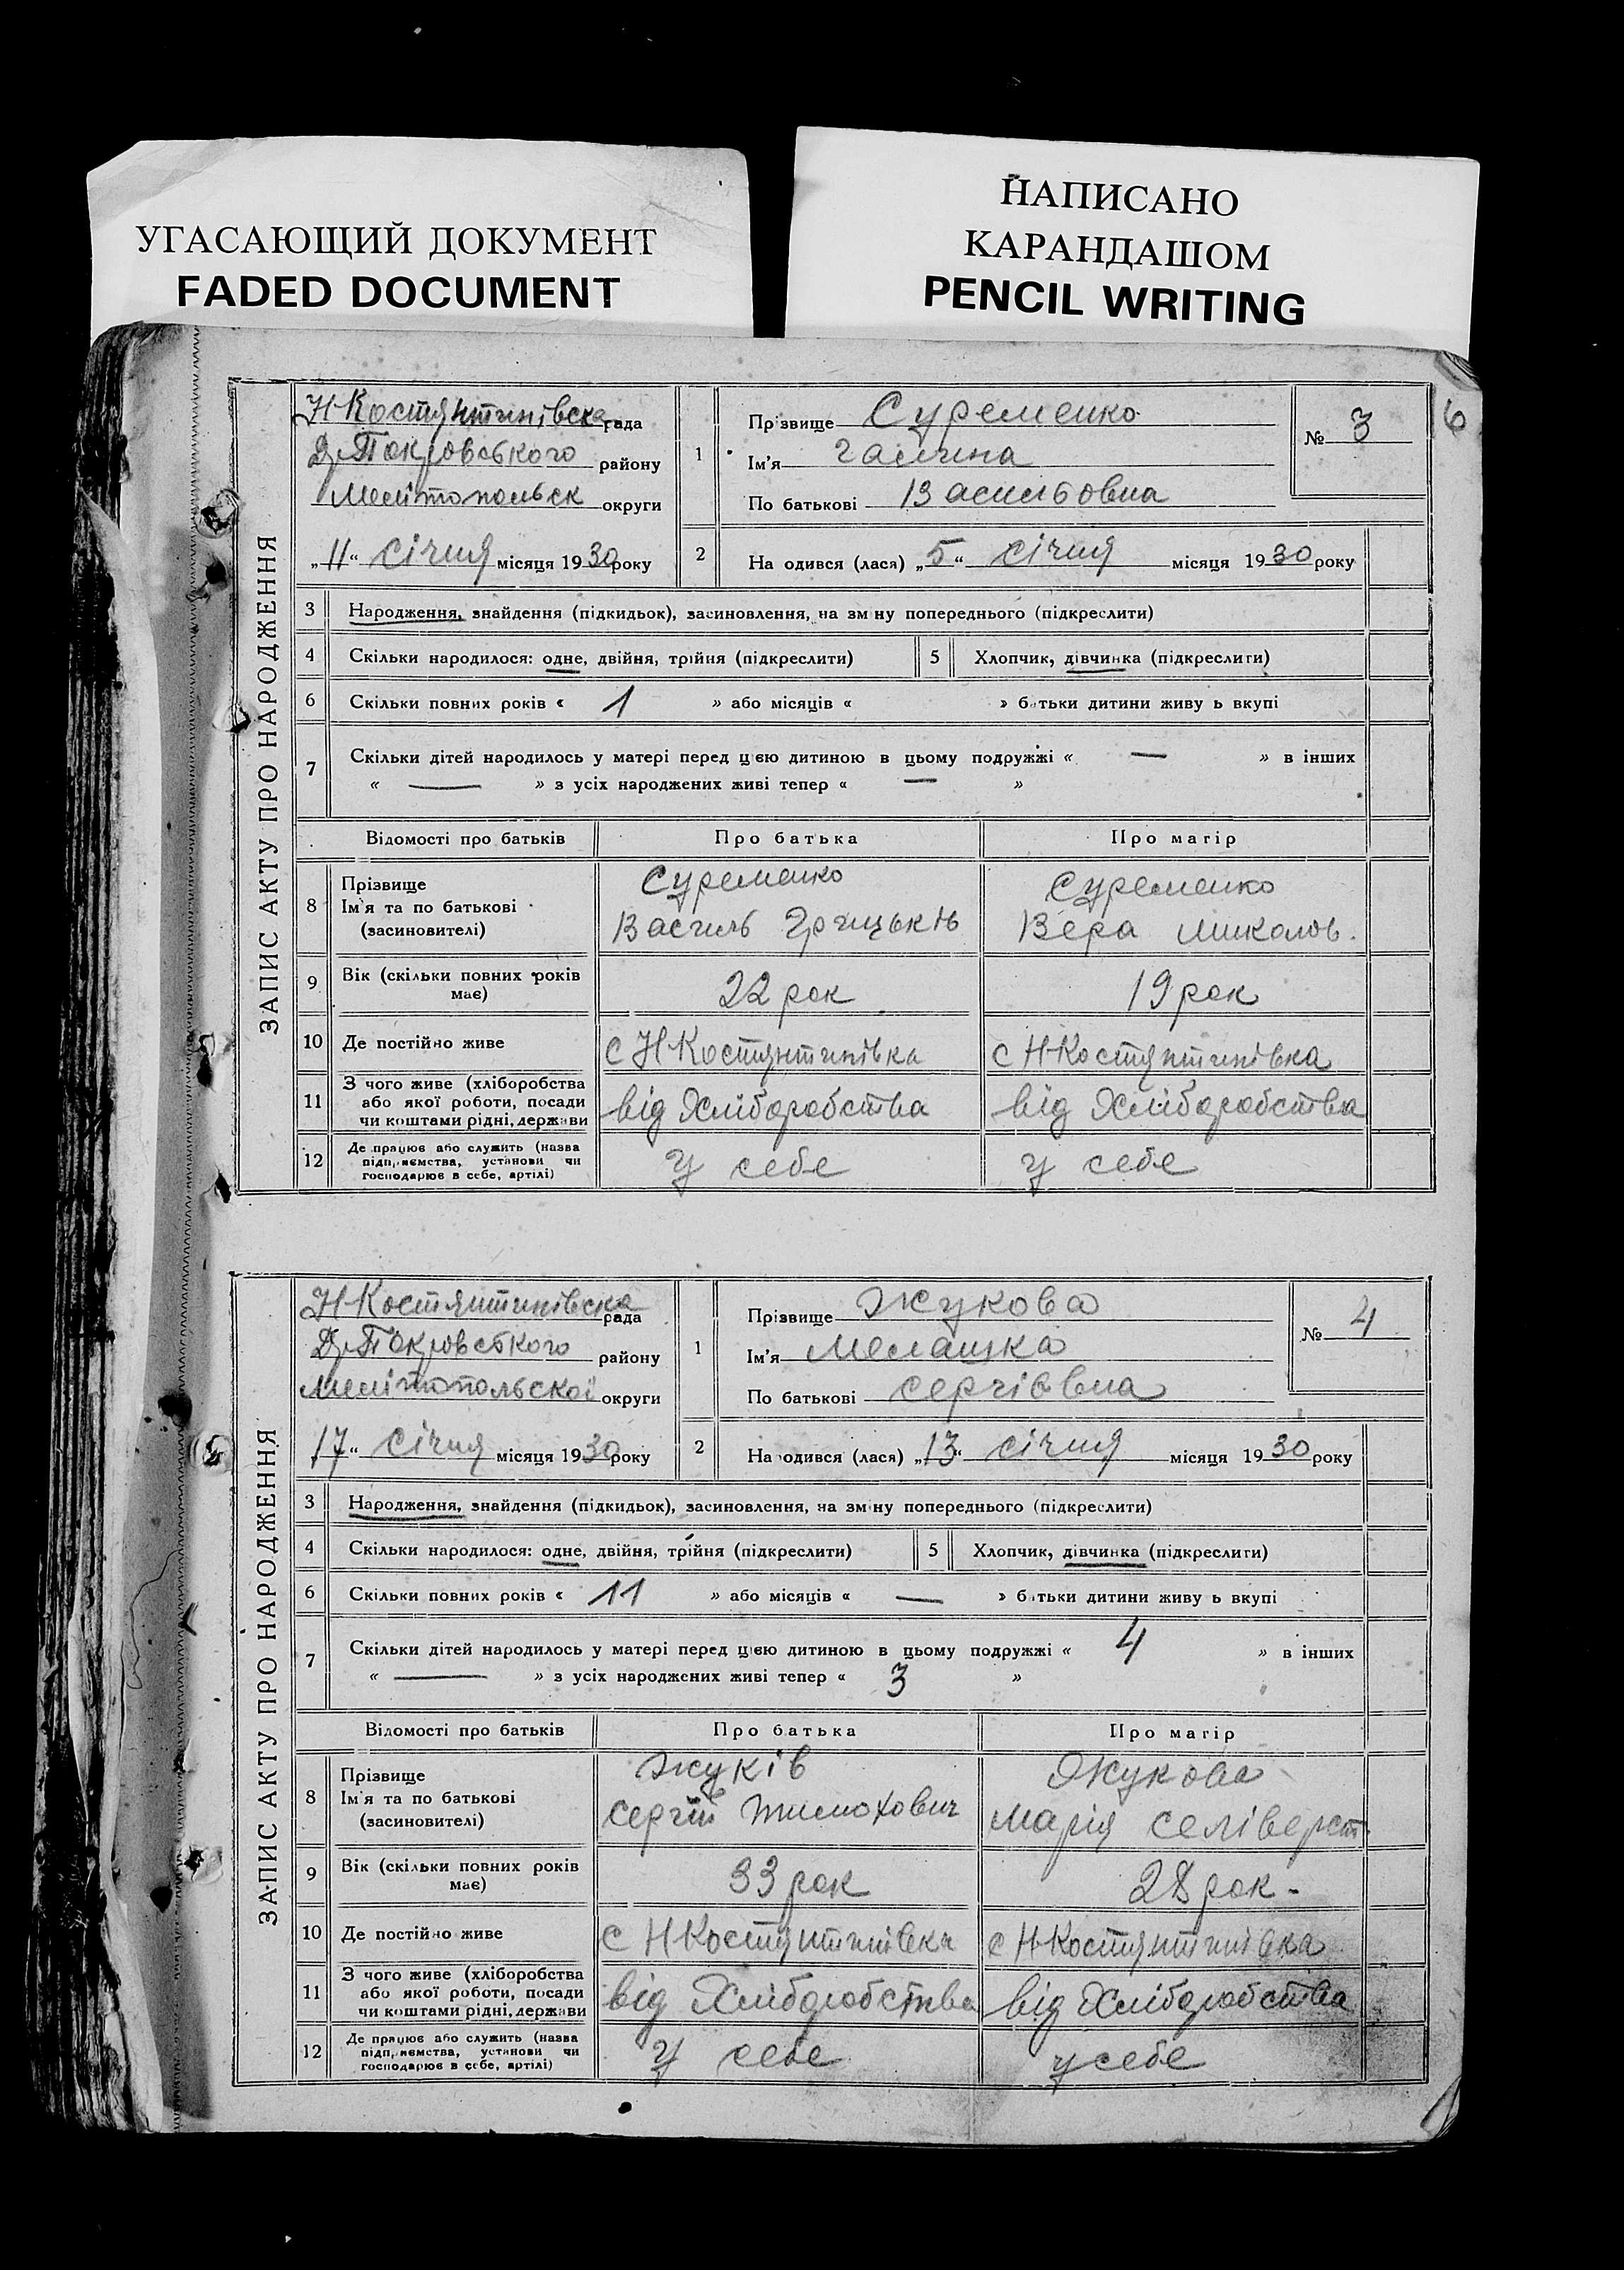 УГАСАЮЩИЙ ДОКУМЕНТ
FADED DOCUMENT
НАПИСАНО
КАРАНДАШОМ
PENCIL WRITING
6
ЗАПИС АКТУ ПРО НАРОДЖЕННЯ
Н-Костянтинівська рада
Др-Покровського району
Мелітопольск округи
„11“ січня місяця 1930 року
1
Прізвище Суременко
Ім'я Галина
По батькові Васильовна
№ 3
2
На одився (лася) „5“ січня місяця 1930 року
3 Народження, знайдення (підкидьок), засиновлення, на зміну попереднього (підкреслити)
4 Скільки народилося: одне, двійня, трійня (підкреслити)
5 Хлопчик, дівчинка (підкреслити)
6 Скільки повних років « 1 » або місяців « » батьки дитини живу ь вкупі
7 Скільки дітей народилось у матері перед цією дитиною в цьому подружжі « — » в інших
« — » з усіх народжених живі тепер « — »
Відомості про батьків Про батька Про матір
8 Прізвище
Ім'я та по батькові
(засиновителі)
Суременко
Василь Грицьків
Суременко
Вера Миколов.
9 Вік (скільки повних років
має)
22 рок
19 рок
10 Де постійно живе
с Н-Костянтинівка
с Н-Костянтинівка
11 З чого живе (хліборобства
або якої роботи, посади
чи коштами рідні, держави
від Хліборобства
від Хліборобства
12 Де працює або служить (назва
підприємства, установи чи
господарює в себе, артілі)
у себе
у себе
ЗАПИС АКТУ ПРО НАРОДЖЕННЯ
Н-Костянтинівска рада
Др-Покровського району
Мелітопольскої округи
17“ січня місяця 1930 року
1
Прізвище Жукова
Ім'я Мелашка
По батькові Сергіївна
№ 4
2
На одився (лася) „13“ січня місяця 1930 року
3 Народження, знайдення (підкидьок), засиновлення, на зміну попереднього (підкреслити)
4 Скільки народилося: одне, двійня, трійня (підкреслити)
5 Хлопчик, дівчинка (підкреслити)
6 Скільки повних років « 11 » або місяців « — » батьки дитини живу ь вкупі
7 Скільки дітей народилось у матері перед цією дитиною в цьому подружжі « 4 » в інших
« — » з усіх народжених живі тепер « 3 »
Відомості про батьків Про батька Про матір
8 Прізвище
Ім'я та по батькові
(засиновителі)
Жуків
Сергій Тимохович
Жукова
Марія Селіверст.
9 Вік (скільки повних років
має)
33 рок
28 рок -
10 Де постійно живе
с Н-Костянтинівка
с Н-Костянтинівка
11 З чого живе (хліборобства
або якої роботи, посади
чи коштами рідні, держави
від Хліборобства
від Хліборобства
12 Де працює або служить (назва
підприємства, установи чи
господарює в себе, артілі)
у себе
у себе